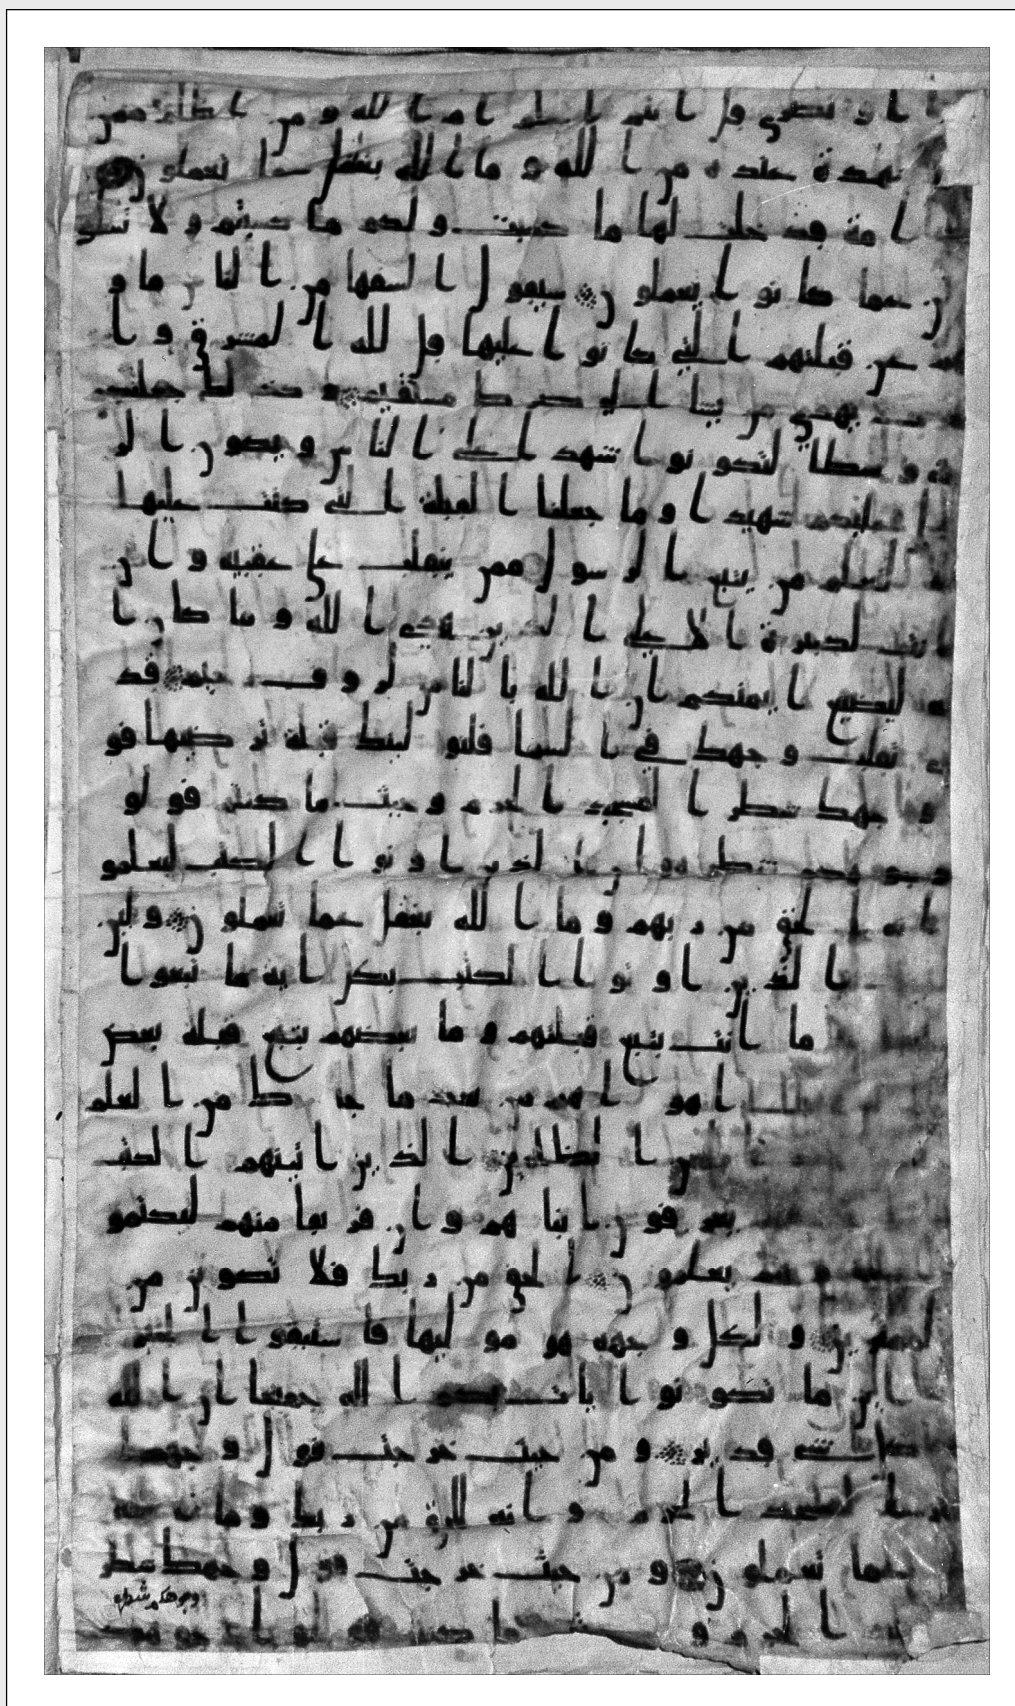 ا او نصرى قل انتم اعلم ام الله و من اظلم ممن
شهدة عنده من الله و ما الله بغفل عما تعملون
امة قد خلت لها ما كسبت و لكم ما كسبتم و لا تسلو
ن عما كانو ا يعملون سيقول السفها من الناس ما و
عن قبلتهم التي كانو ا عليها قل لله المشرق و ا
يهدي من يشا الى صرط مستقيم و كذلك جعلنكم
و سطا لتكونو ا شهدا على الناس و يكون الر
عليكم شهيدا و ما جعلنا القبلة التي كنت عليها
لنعلم من يتبع الرسول ممن ينقلب على عقبيه و ان
نت لكبيرة الا على الذين هدى الله و ما كان ا
لله ليضيع ايمنكم ان الله بالناس لروف رحيم قد
تقلب و جهك في السما فلنولينك قبلة ترضيها فو
ل و جهك شطر المسجد الحرم و حيث ما كنتم فولو
و جوهكم شطره و ان الذين او تو ا الكتب ليعلمو
ن انه الحق من ربهم و ما الله بغفل عما تعملون و لين
الذين او تو ا الكتب بكل اية ما تبعو ا
ما انت بتبع قبلتهم و ما بعضهم بتبع قبلة بعض
اهو اهم من بعد ما جاك من العلم
لمن الظلمين الذين اتينهم الكتب
يعر فون ابناهم و ان فريقا منهم ليكتمو
و هم يعلمون الحق من ربك فلا تكونن من
الممترين و لكل و جهة هو موليها فاستبقو ا الخير
اين ما تكونو ا يات بكم الله جميعا ان الله
كل شي قدير و من حيث خرجت فول و جهك
شطر المسجد الحرم و انه للحق من ربك و ما الله
عما تعملون و من حيث خرجت فول و جهك شطر
وجوهكم شطره
الحرم و حيث ما كنتم فولو ا و جوهكم